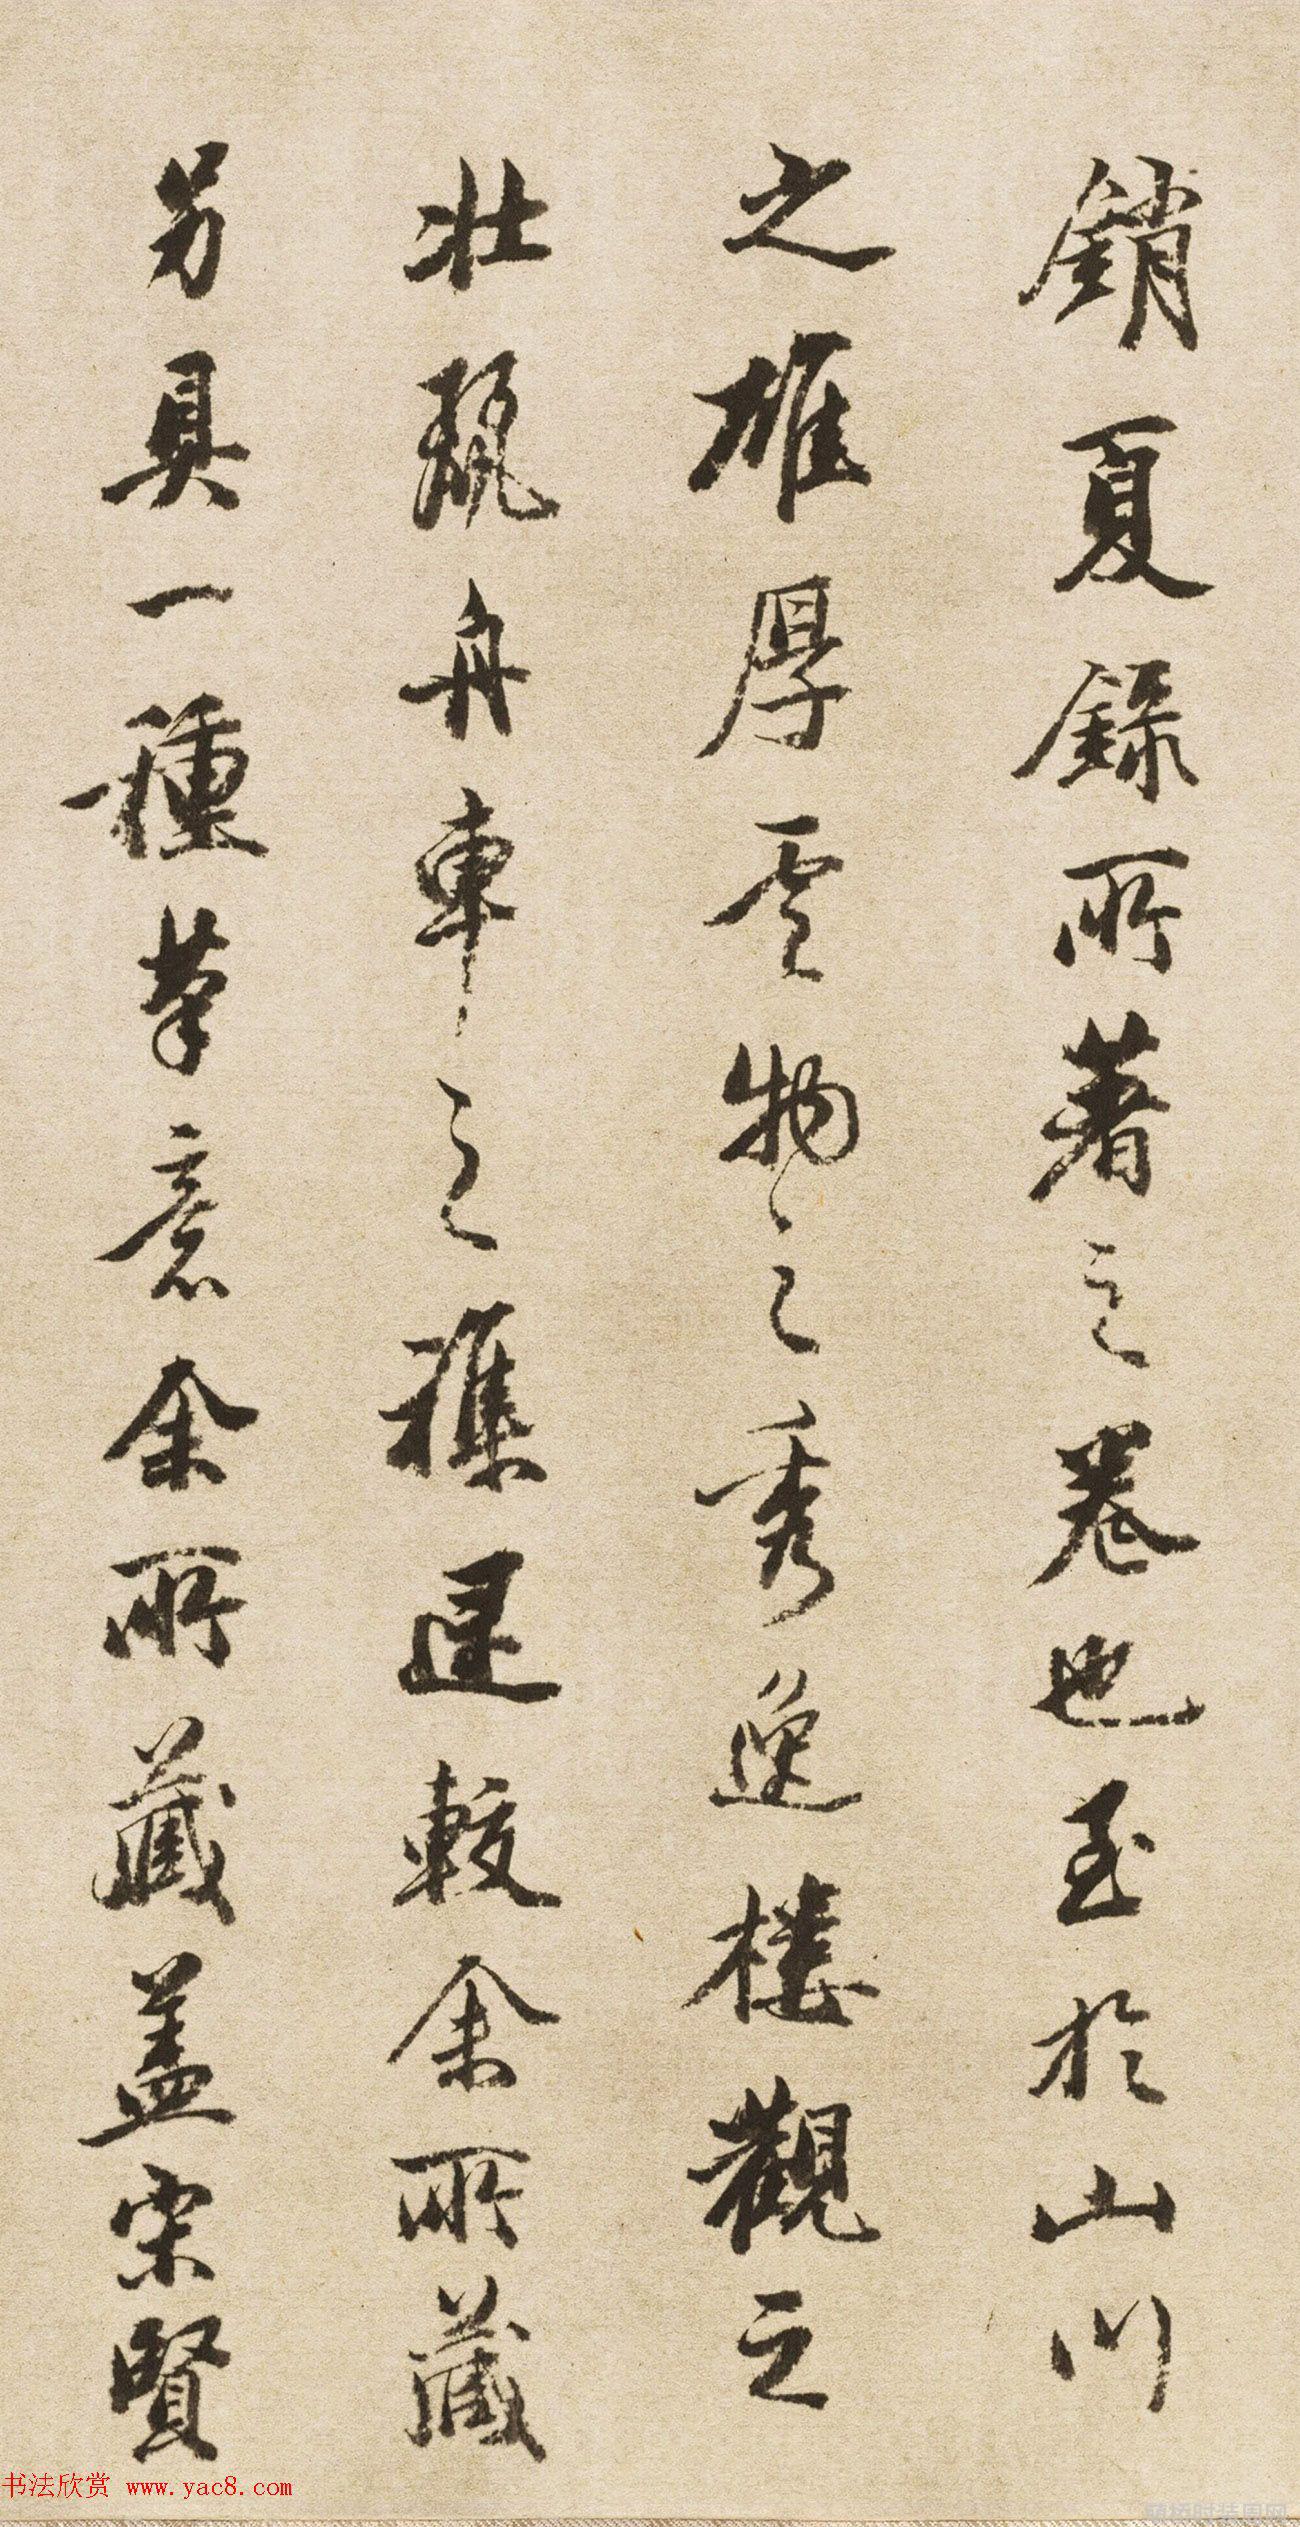 銷夏錄所著之卷也至於山川
之雄厚雲物之秀逸樓觀之
壯麗舟車之樸遅較余所藏
另具一種筆意余所藏蓋宋賢
书法欣赏 www.yac8.com